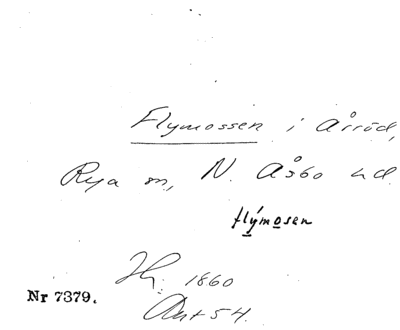 Flymossen i Årröd,
Rya sn, N. Åsbo hd.
flýmosen
Hj. 1860
Nr 7379.
Ant 54.